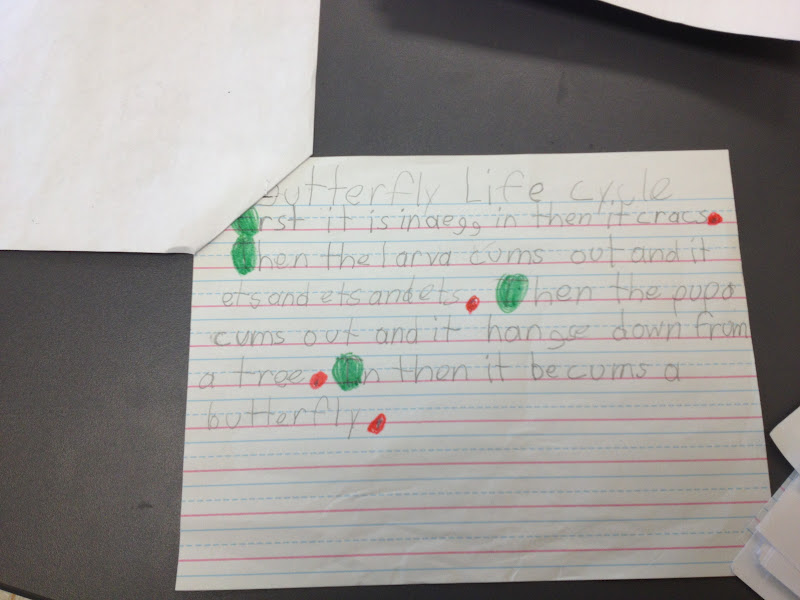 Butterfly Life cycle
First it is in aegg in then it cracs.
Then the larva cums out and it
ets and ets and ets. Then the pupa
cums out and it hangse down from
a tree. In then it becums a
butterfly.